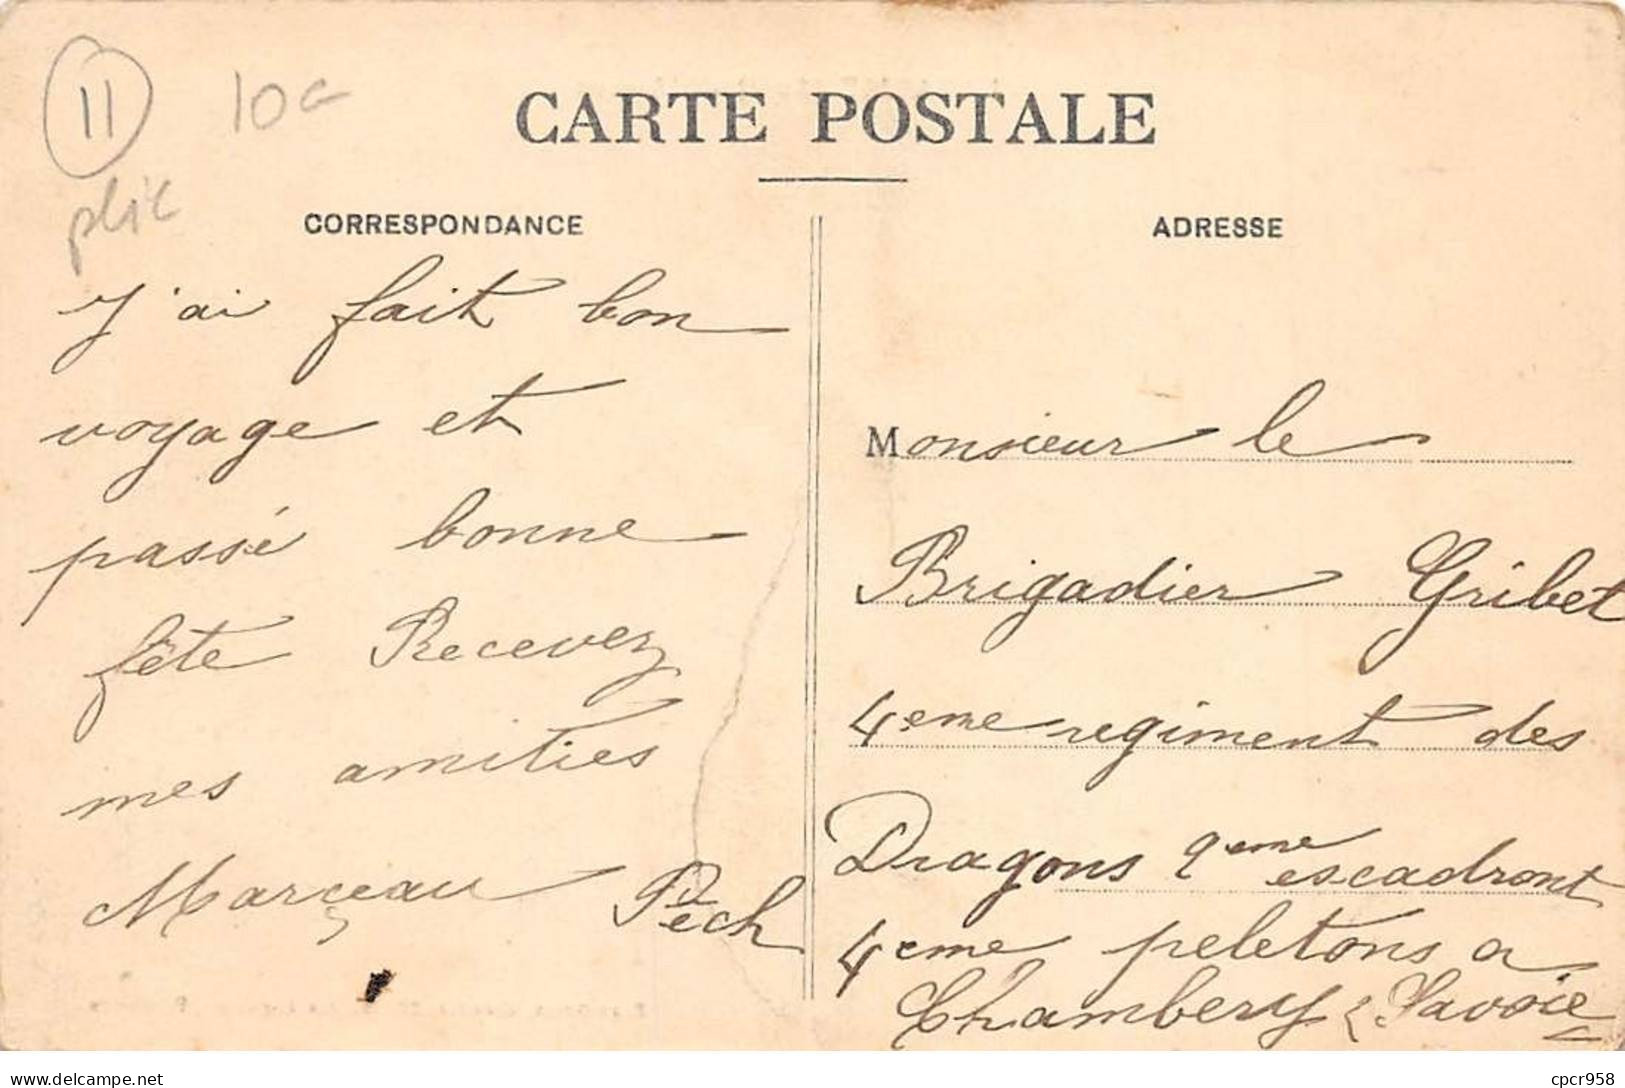 11 10c
plic
CARTE POSTALE
CORRESPONDANCE
J'ai fait bon
voyage et
passé bonne
fête Recevez
mes amitiés
Marçeau Pech
ADRESSE
Monsieur le
Brigadier Gribet
4eme regiment des
Dragons 2eme escadront
4eme peletons a
Chambery Savoie
delcampe.net
cpcr958